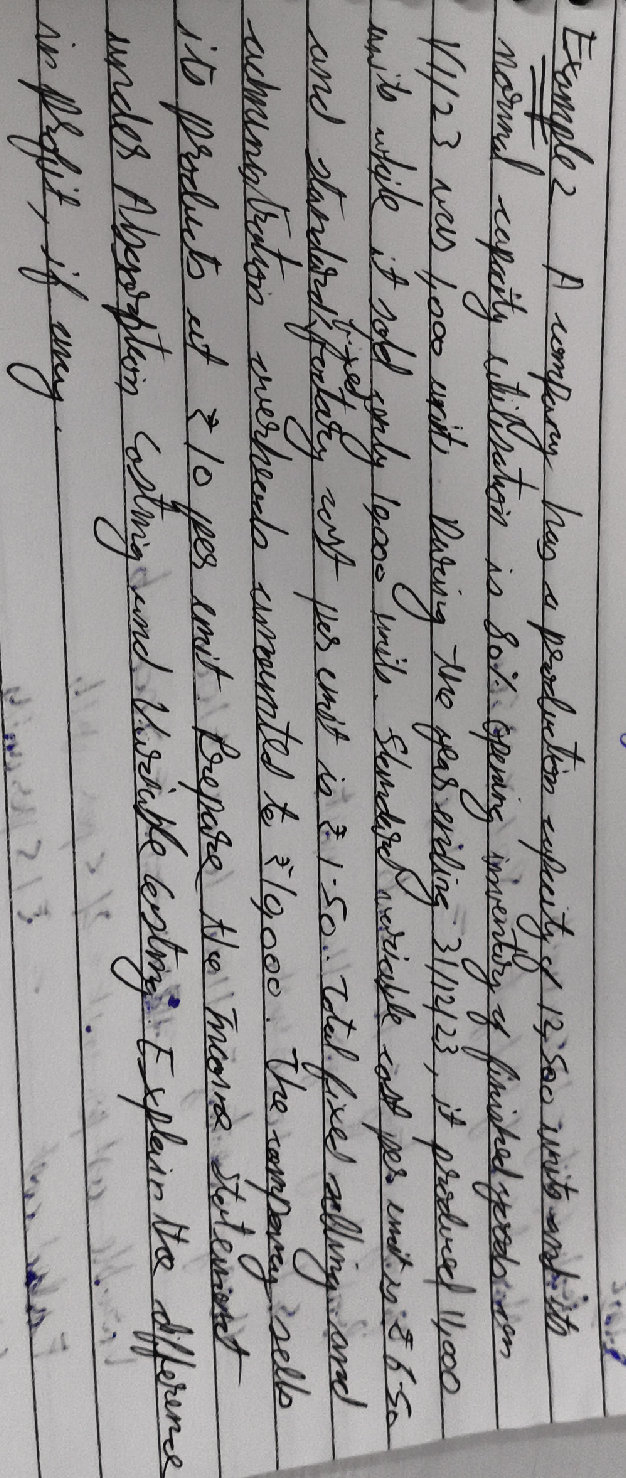 Example 2 A company has a production capacity of 12,500 units and its
normal capacity utilisation is 80%. opening inventory of finished goods on
1/1/23 was 1,000 units. During the year ending 31/12/23, it produced 11,000
units while it sold only 10,000 units. Standard variable cost per unit is ₹ 6.50
and standard fixed factory cost per unit is ₹ 1.50. Total fixed selling and
administration overheads amounted to ₹ 10,000. The company sells
its products at ₹ 10 per unit Prepare the Income Statement
under Absorption Costing and Variable Costing. Explain the difference
in profit, if any.